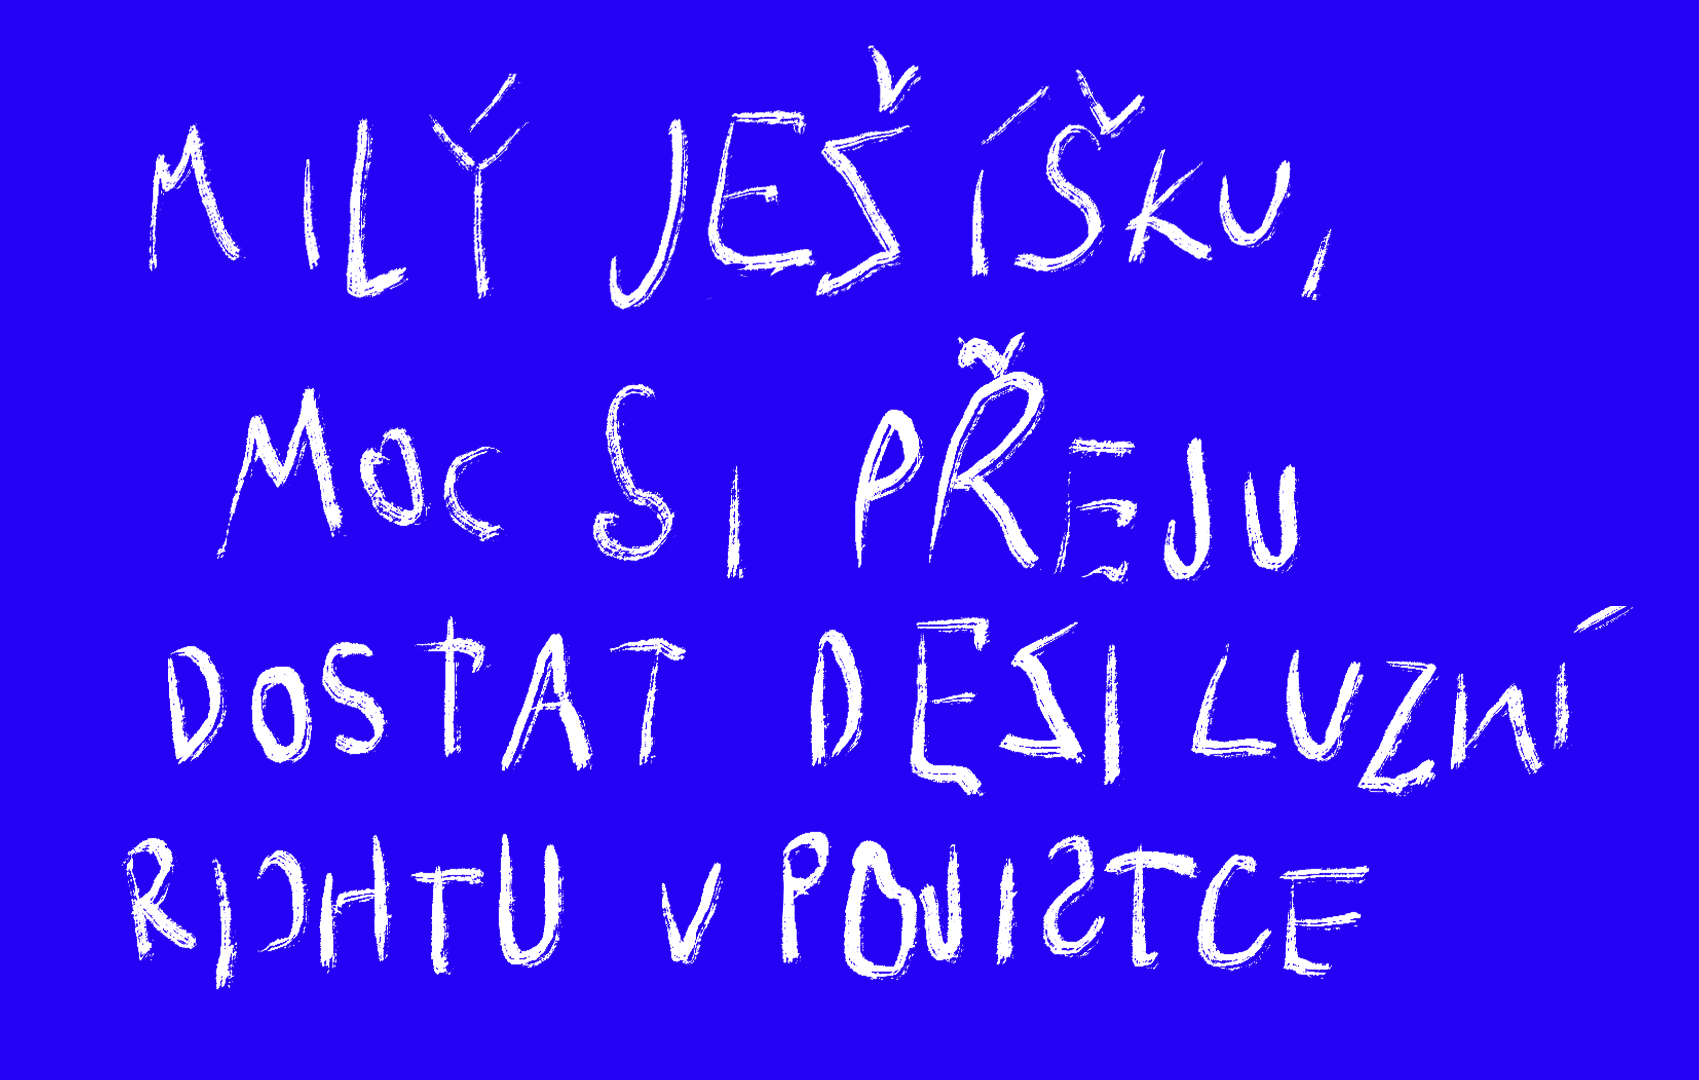 MILÝ JEŠÍŠKU,
MOC SI PŘEJU
DOSTAT DESILUZNÍ
RICHTU V POVISTCE